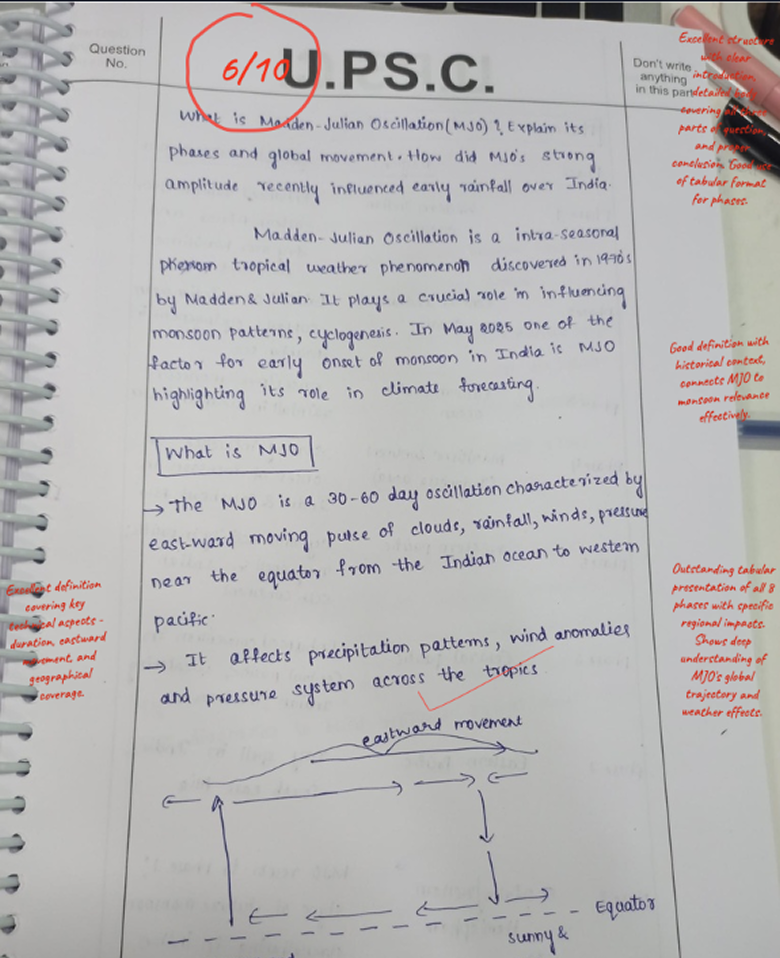 Question
No.
6/10
U.P.S.C.
Don't write
anything
in this part
Excellent structure
with clear
introduction,
detailed body
covering all three
parts of question,
and proper
conclusion. Good use
of tabular format
for phases.
What is Madden-Julian Oscillation (MJO)? Explain its
phases and global movement. How did MJO's strong
amplitude recently influenced early rainfall over India.
Madden-Julian Oscillation is a intra-seasonal
tropical weather phenomenon discovered in 1970's
by Madden & Julian. It plays a crucial role in influencing
monsoon patterns, cyclogenesis. In May 2025 one of the
factor for early onset of monsoon in India is MJO
highlighting its role in climate forecasting.
Good definition with
historical context,
connects MJO to
monsoon relevance
effectively.
What is MJO
→ The MJO is a 30-60 day oscillation characterized by
east-ward moving pulse of clouds, rainfall, winds, pressure
near the equator from the Indian ocean to western
pacific.
→ It affects precipitation patterns, wind anomalies
and pressure system across the tropics
Excellent definition
covering key
technical aspects -
duration, eastward
movement, and
geographical
coverage.
Outstanding tabular
presentation of all 8
phases with specific
regional impacts.
Shows deep
understanding of
MJO's global
trajectory and
weather effects.
eastward movement
Equator
sunny &